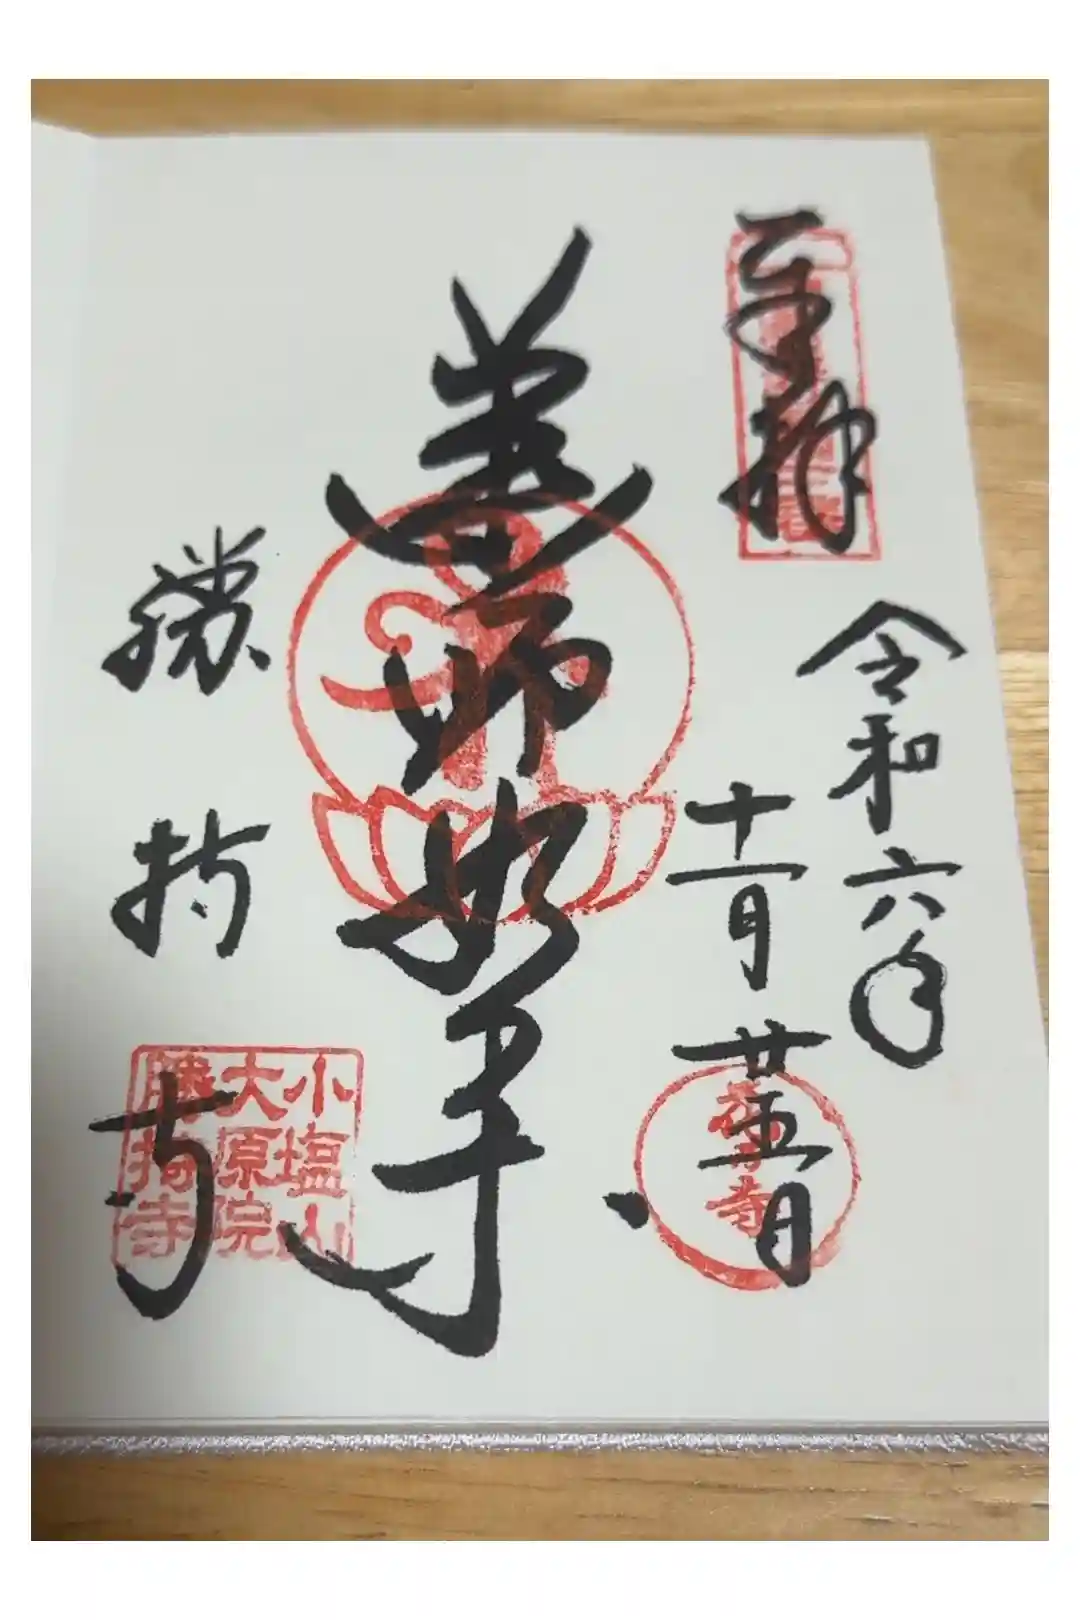 奉拝
令和六年
十一月廿五日
薬師如来
勝持寺
花の寺
小塩山
大原院
勝持寺